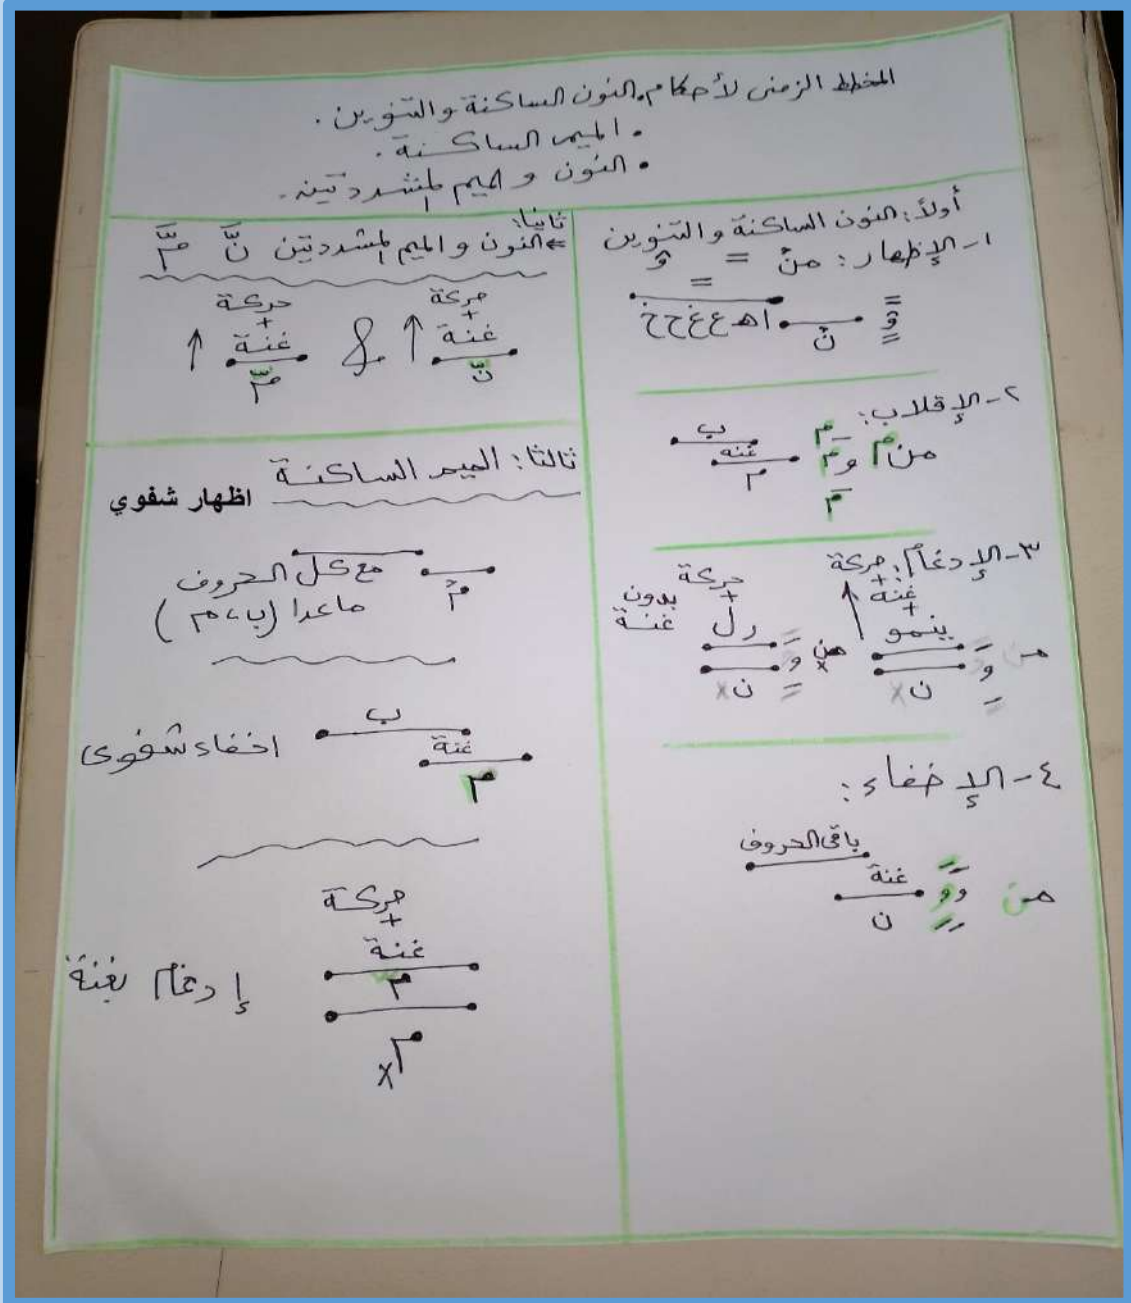 المخطط الزمنى لأحكام النون الساكنة والتنوين .
• الميم الساكنة .
• النون و الميم المشددتين .
أولاً: النون الساكنة والتنوين
١- الإظهار: منْ
ا هـ ع غ ح خ
نْ
٢- الإقلاب:
من م
ب
غنه
م
٣- الإدغام:
حركة
+
غنة
+
ينمو
من
ن x
حركة
+
رل
بدون
غنة
من
x
ن x
٤- الإخفاء:
باقى الحروف
غنة
ن
من
ثانيا:
النون و الميم المشددتين نّ مّ
حركة
+
غنة
نّ
&
حركة
+
غنة
مّ
ثالثا: الميم الساكنة
اظهار شفوي
مع كل الحروف
ماعدا (ب، م)
مْ
ب
غنة
م
اخفاء شفوى
حركة
+
غنة
م
م x
إدغام بغنة